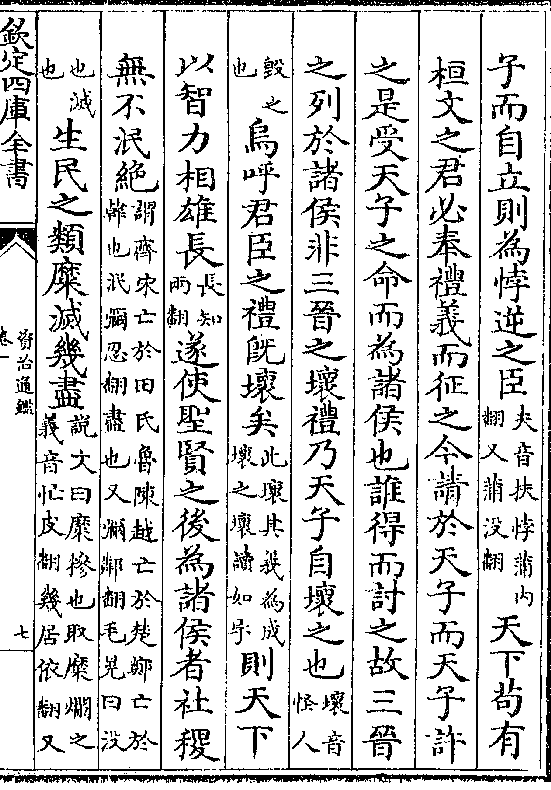 子而自立則為悖逆之臣夫音扶悖蒲内翻又蒲没翻天下苟有
桓文之君必奉禮義而征之今請於天子而天子許
之是受天子之命而為諸侯也誰得而討之故三晉
之列於諸侯非三晉之壞禮乃天子自壞之也壞音怪人
毁之也烏呼君臣之禮既壞矣此壞其義為成壞之壞讀如字則天下
以智力相雄長長知兩翻遂使聖賢之後為諸侯者社稷
無不泯絶謂齊宋亡於田氏魯陳越亡於楚鄭亡於韓也泯彌忍翻盡也又彌鄰翻毛晃曰没
也滅也生民之類糜滅幾盡説文曰糜糝也取糜爛之義音忙皮翻幾居依翻又
欽定四庫全書
資治通鑑
卷一
七